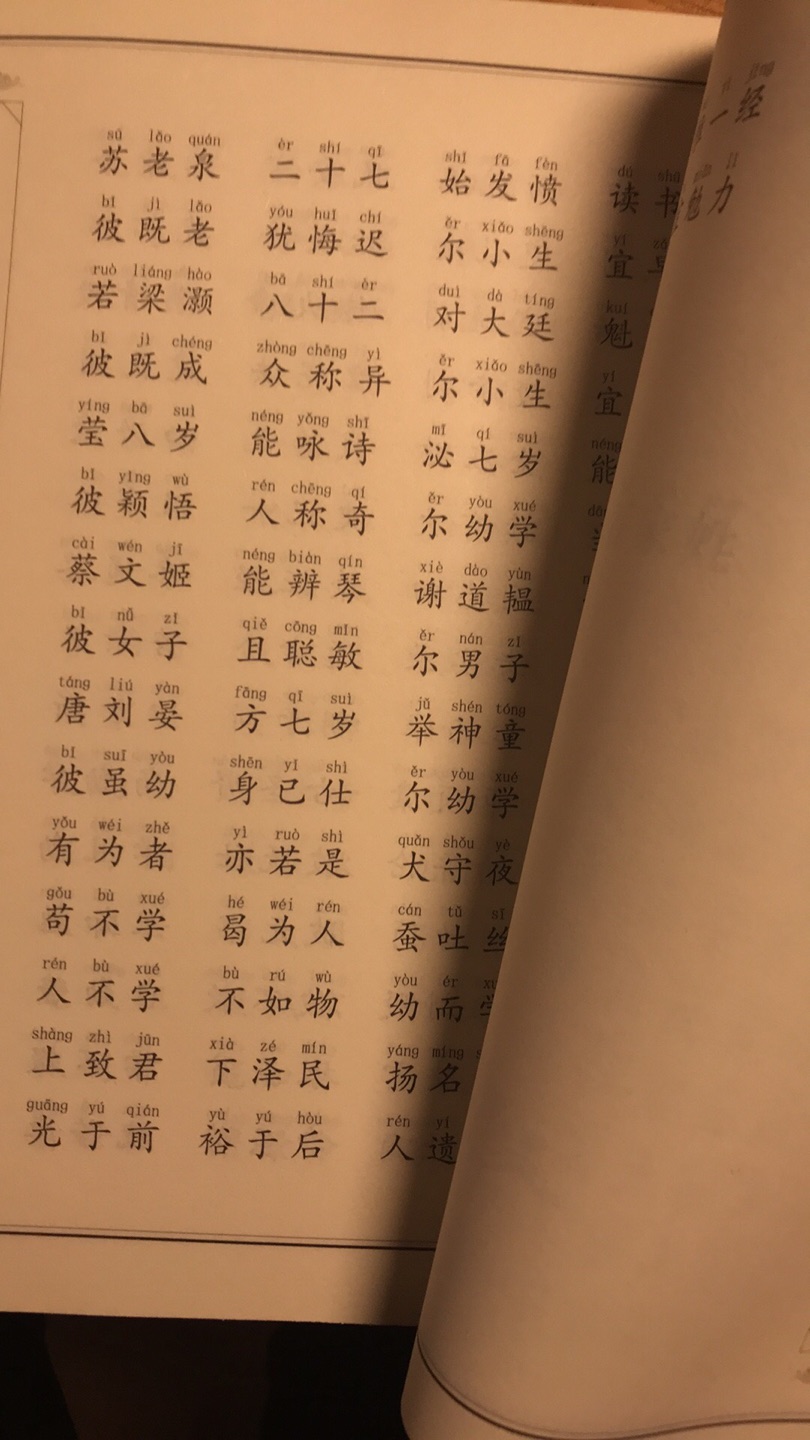 sū lǎo quán èr shí qī shǐ fā fèn dú shū
苏老泉 二十七 始发愤 读书
bǐ jì lǎo yóu huǐ chí ěr xiǎo shēng yí zǎo
彼既老 犹悔迟 尔小生 宜早
ruò liáng hào bā shí èr duì dà tíng kuí
若梁灏 八十二 对大廷 魁
bǐ jì chéng zhòng chēng yì ěr xiǎo shēng yí
彼既成 众称异 尔小生 宜
yíng bā suì néng yǒng shī mì qī suì néng
莹八岁 能咏诗 泌七岁 能
bǐ yǐng wù rén chēng qí ěr yòu xué
彼颖悟 人称奇 尔幼学
cài wén jī néng biàn qín xiè dào yùn
蔡文姬 能辨琴 谢道韫
bǐ nǚ zǐ qiě cōng mǐn ěr nán zǐ
彼女子 且聪敏 尔男子
táng liú yàn fāng qī suì jǔ shén tóng
唐刘晏 方七岁 举神童
bǐ suī yòu shēn yǐ shì ěr yòu xué
彼虽幼 身已仕 尔幼学
yǒu wéi zhě yì ruò shì quǎn shǒu yè
有为者 亦若是 犬守夜
gǒu bù xué hé wéi rén cán tǔ sī
苟不学 曷为人 蚕吐丝
rén bù xué bù rú wù yòu ér
人不学 不如物 幼而学
shàng zhì jūn xià zé mín yáng míng
上致君 下泽民 扬名
guāng yú qián yù yú hòu rén yí
光于前 裕于后 人遗
一经
力